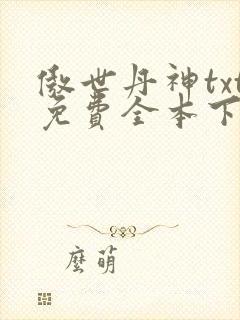 傲世丹神txt
免費全本下
麼萌